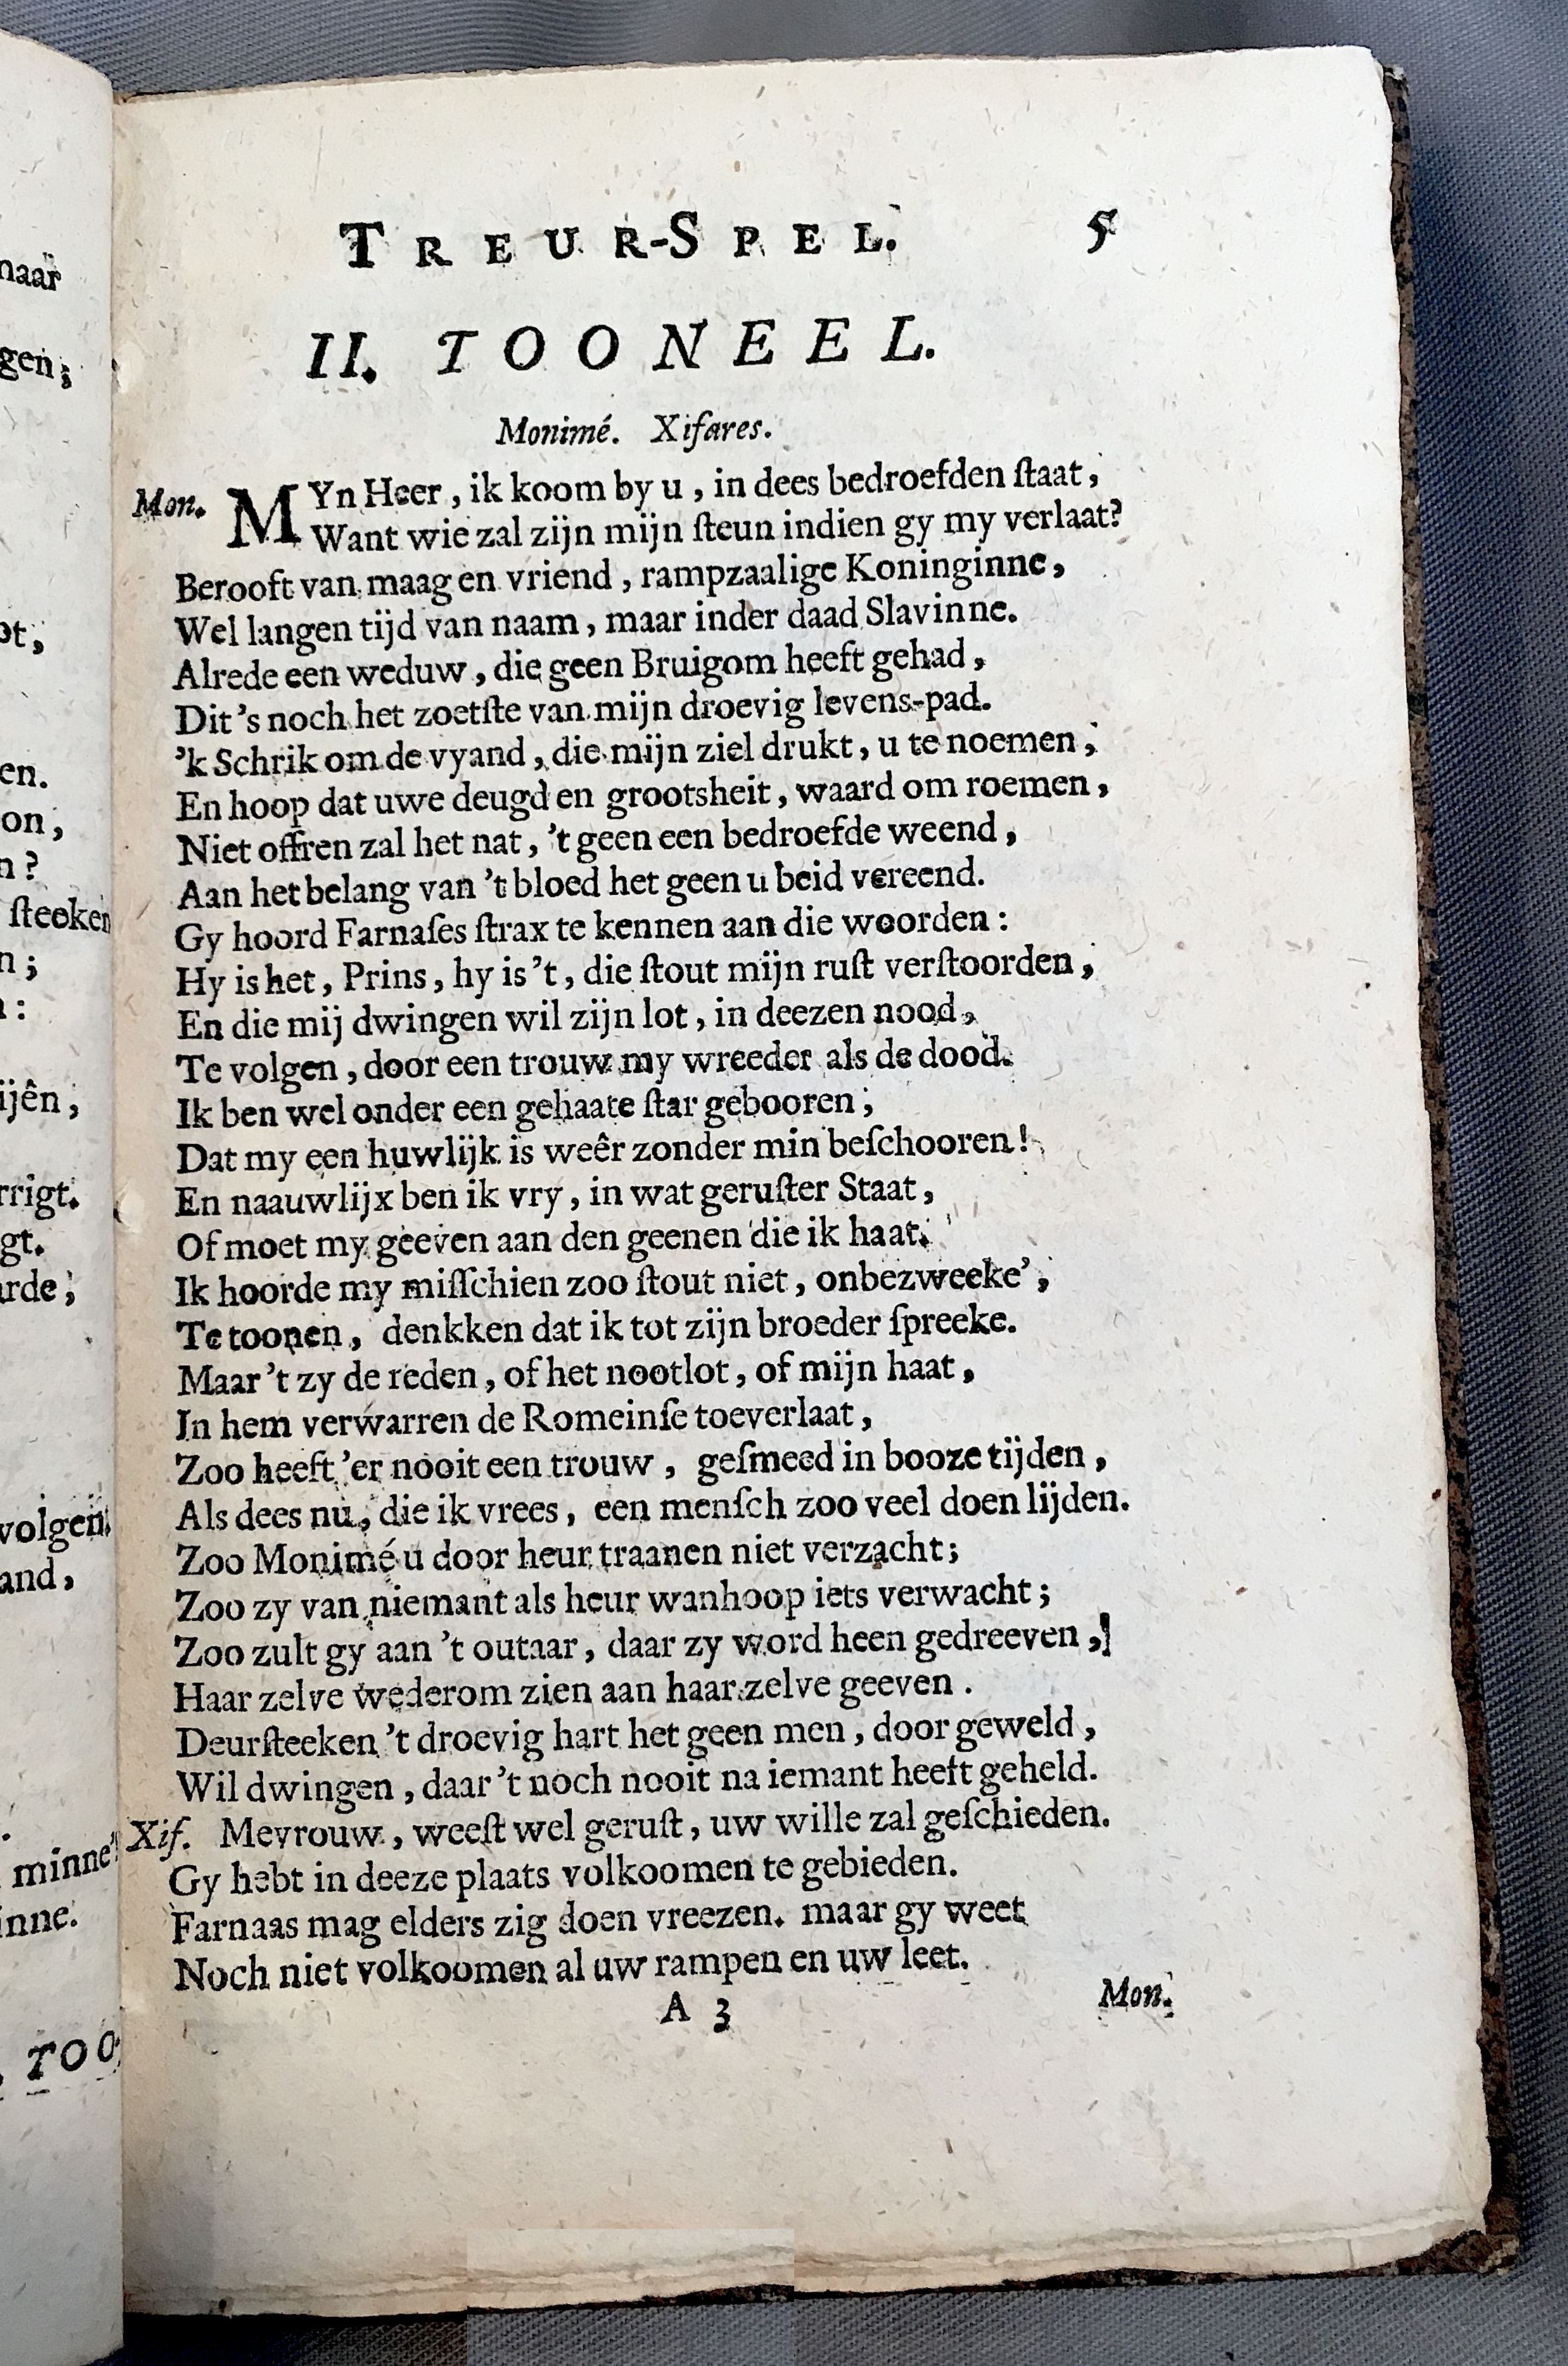 TREUR-SPEL. 5
II. TOONEEL.
Monimé. Xiſares.
Mon. MYn Heer, ik koom by u, in dees bedroefden ſtaat,
Want wie zal zijn mijn ſteun indien gy my verlaat?
Berooft van maag en vriend, rampzaalige Koninginne,
Wel langen tijd van naam, maar inder daad Slavinne.
Alrede een weduw, die geen Bruigom heeft gehad,
Dit 's noch het zoetſte van mijn droevig levens-pad.
'k Schrik om de vyand, die mijn ziel drukt, u te noemen,
En hoop dat uwe deugd en grootsheit, waard om roemen,
Niet offren zal het nat, 't geen een bedroefde weend,
Aan het belang van 't bloed het geen u beid vereend.
Gy hoord Farnaſes ſtrax te kennen aan die woorden:
Hy is het, Prins, hy is 't, die ſtout mijn ruſt verſtoorden,
En die mij dwingen wil zijn lot, in deezen nood,
Te volgen, door een trouw my wreeder als de dood.
Ik ben wel onder een gehaate ſtar gebooren;
Dat my een huwlijk is weêr zonder min beſchooren!
En naauwlijx ben ik vry, in wat geruſter Staat,
Of moet my geeven aan den geenen die ik haat.
Ik hoorde my miſſchien zoo ſtout niet, onbezweeke',
Te toonen, denkken dat ik tot zijn broeder ſpreeke.
Maar 't zy de reden, of het nootlot, of mijn haat,
In hem verwarren de Romeinſe toeverlaat,
Zoo heeft 'er nooit een trouw, geſmeed in booze tijden,
Als dees nu, die ik vrees, een menſch zoo veel doen lijden.
Zoo Monimé u door heur traanen niet verzacht;
Zoo zy van niemant als heur wanhoop iets verwacht;
Zoo zult gy aan 't outaar, daar zy word heen gedreeven,
Haar zelve wederom zien aan haar zelve geeven.
Deurſteeken 't droevig hart het geen men, door geweld,
Wil dwingen, daar 't noch nooit na iemant heeft geheld.
Xif. Mevrouw, weeſt wel geruſt, uw wille zal geſchieden.
Gy hebt in deeze plaats volkoomen te gebieden.
Farnaas mag elders zig doen vreezen. maar gy weet
Noch niet volkoomen al uw rampen en uw leet.
A 3 Mon.
naar
gen;
ot,
en.
on,
n?
ſteeken
n;
:
ijên,
rrigt.
gt.
rde;
volgen
and,
minne'
inne.
TOO